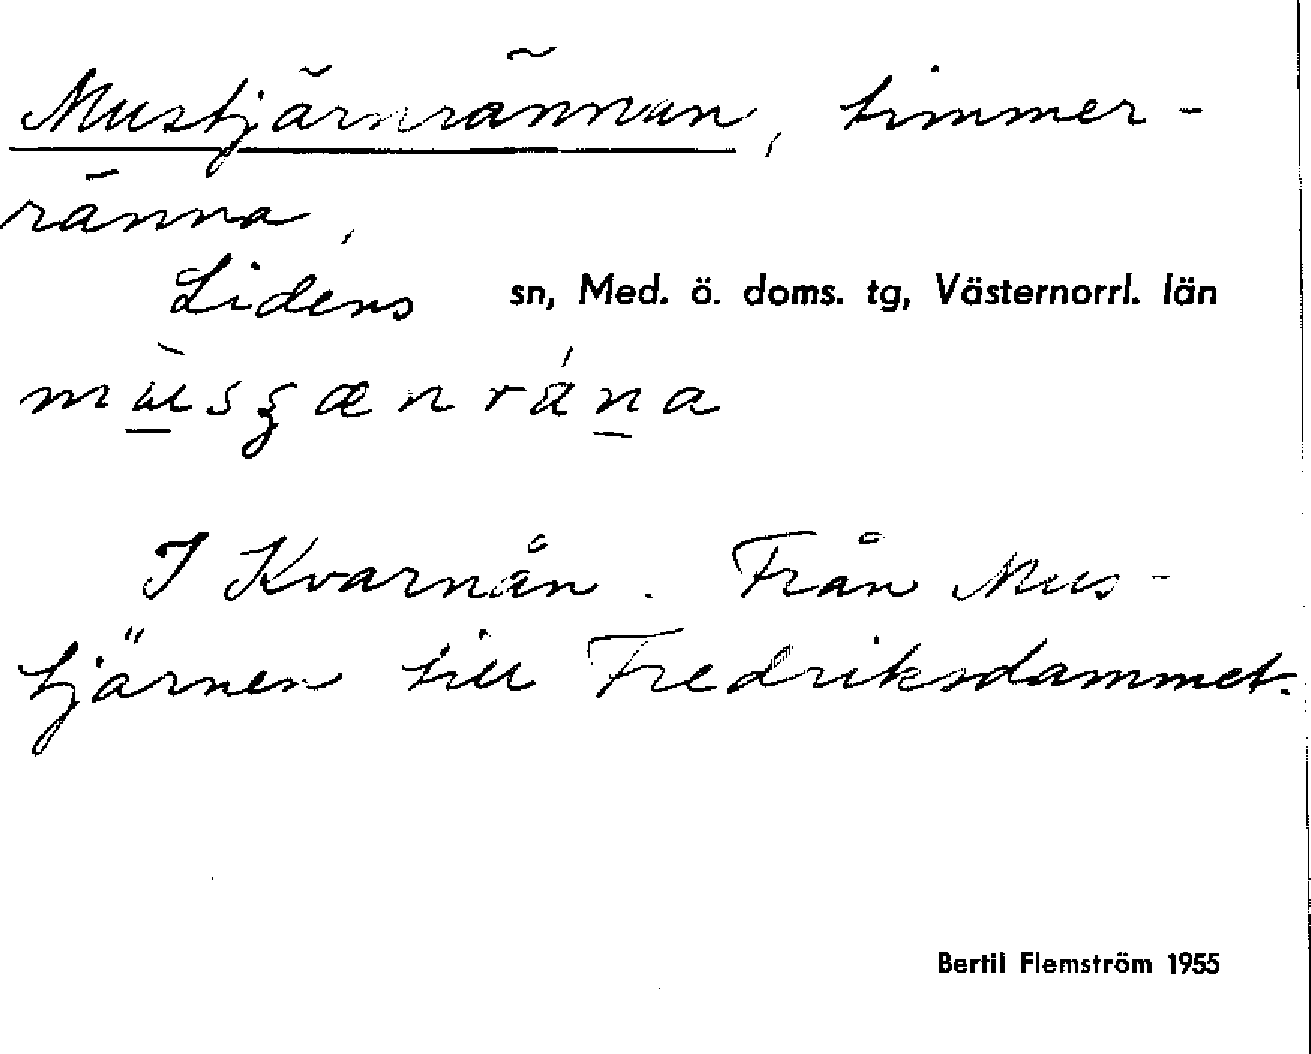 Mustjärnrännan, timmer-
ränna,
Lidens sn, Med. ö. doms. tg, Västernorrl. län
I Kvarnån. Från Mus-
tjärnen till Fredriksdammet.
Bertil Flemström 1955